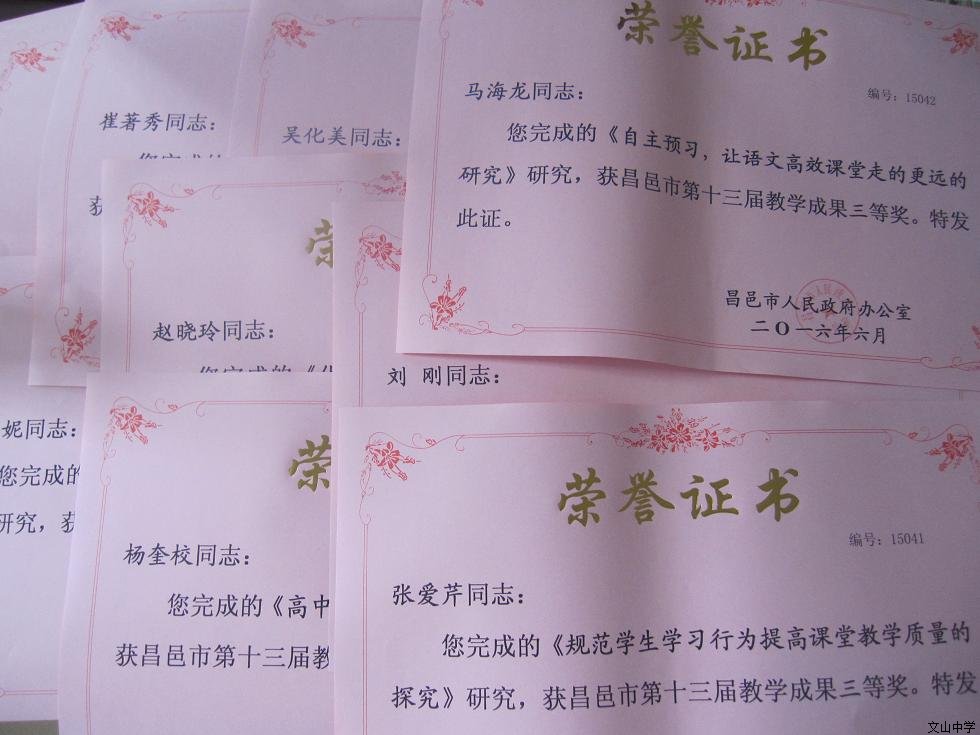 荣誉证书
编号：15042
马海龙同志：
您完成的《自主预习，让语文高效课堂走的更远的
研究》研究，获昌邑市第十三届教学成果三等奖。特发
此证。
昌邑市人民政府办公室
二〇一六年六月
崔著秀同志：
您完成的
获
吴化美同志：
荣
赵晓玲同志：
您完成的《
刘 刚同志：
妮同志：
您完成的
研究，获
荣
杨奎校同志：
您完成的《高中
获昌邑市第十三届教
荣誉证书
编号：15041
张爱芹同志：
您完成的《规范学生学习行为提高课堂教学质量的
探究》研究，获昌邑市第十三届教学成果三等奖。特发
文山中学